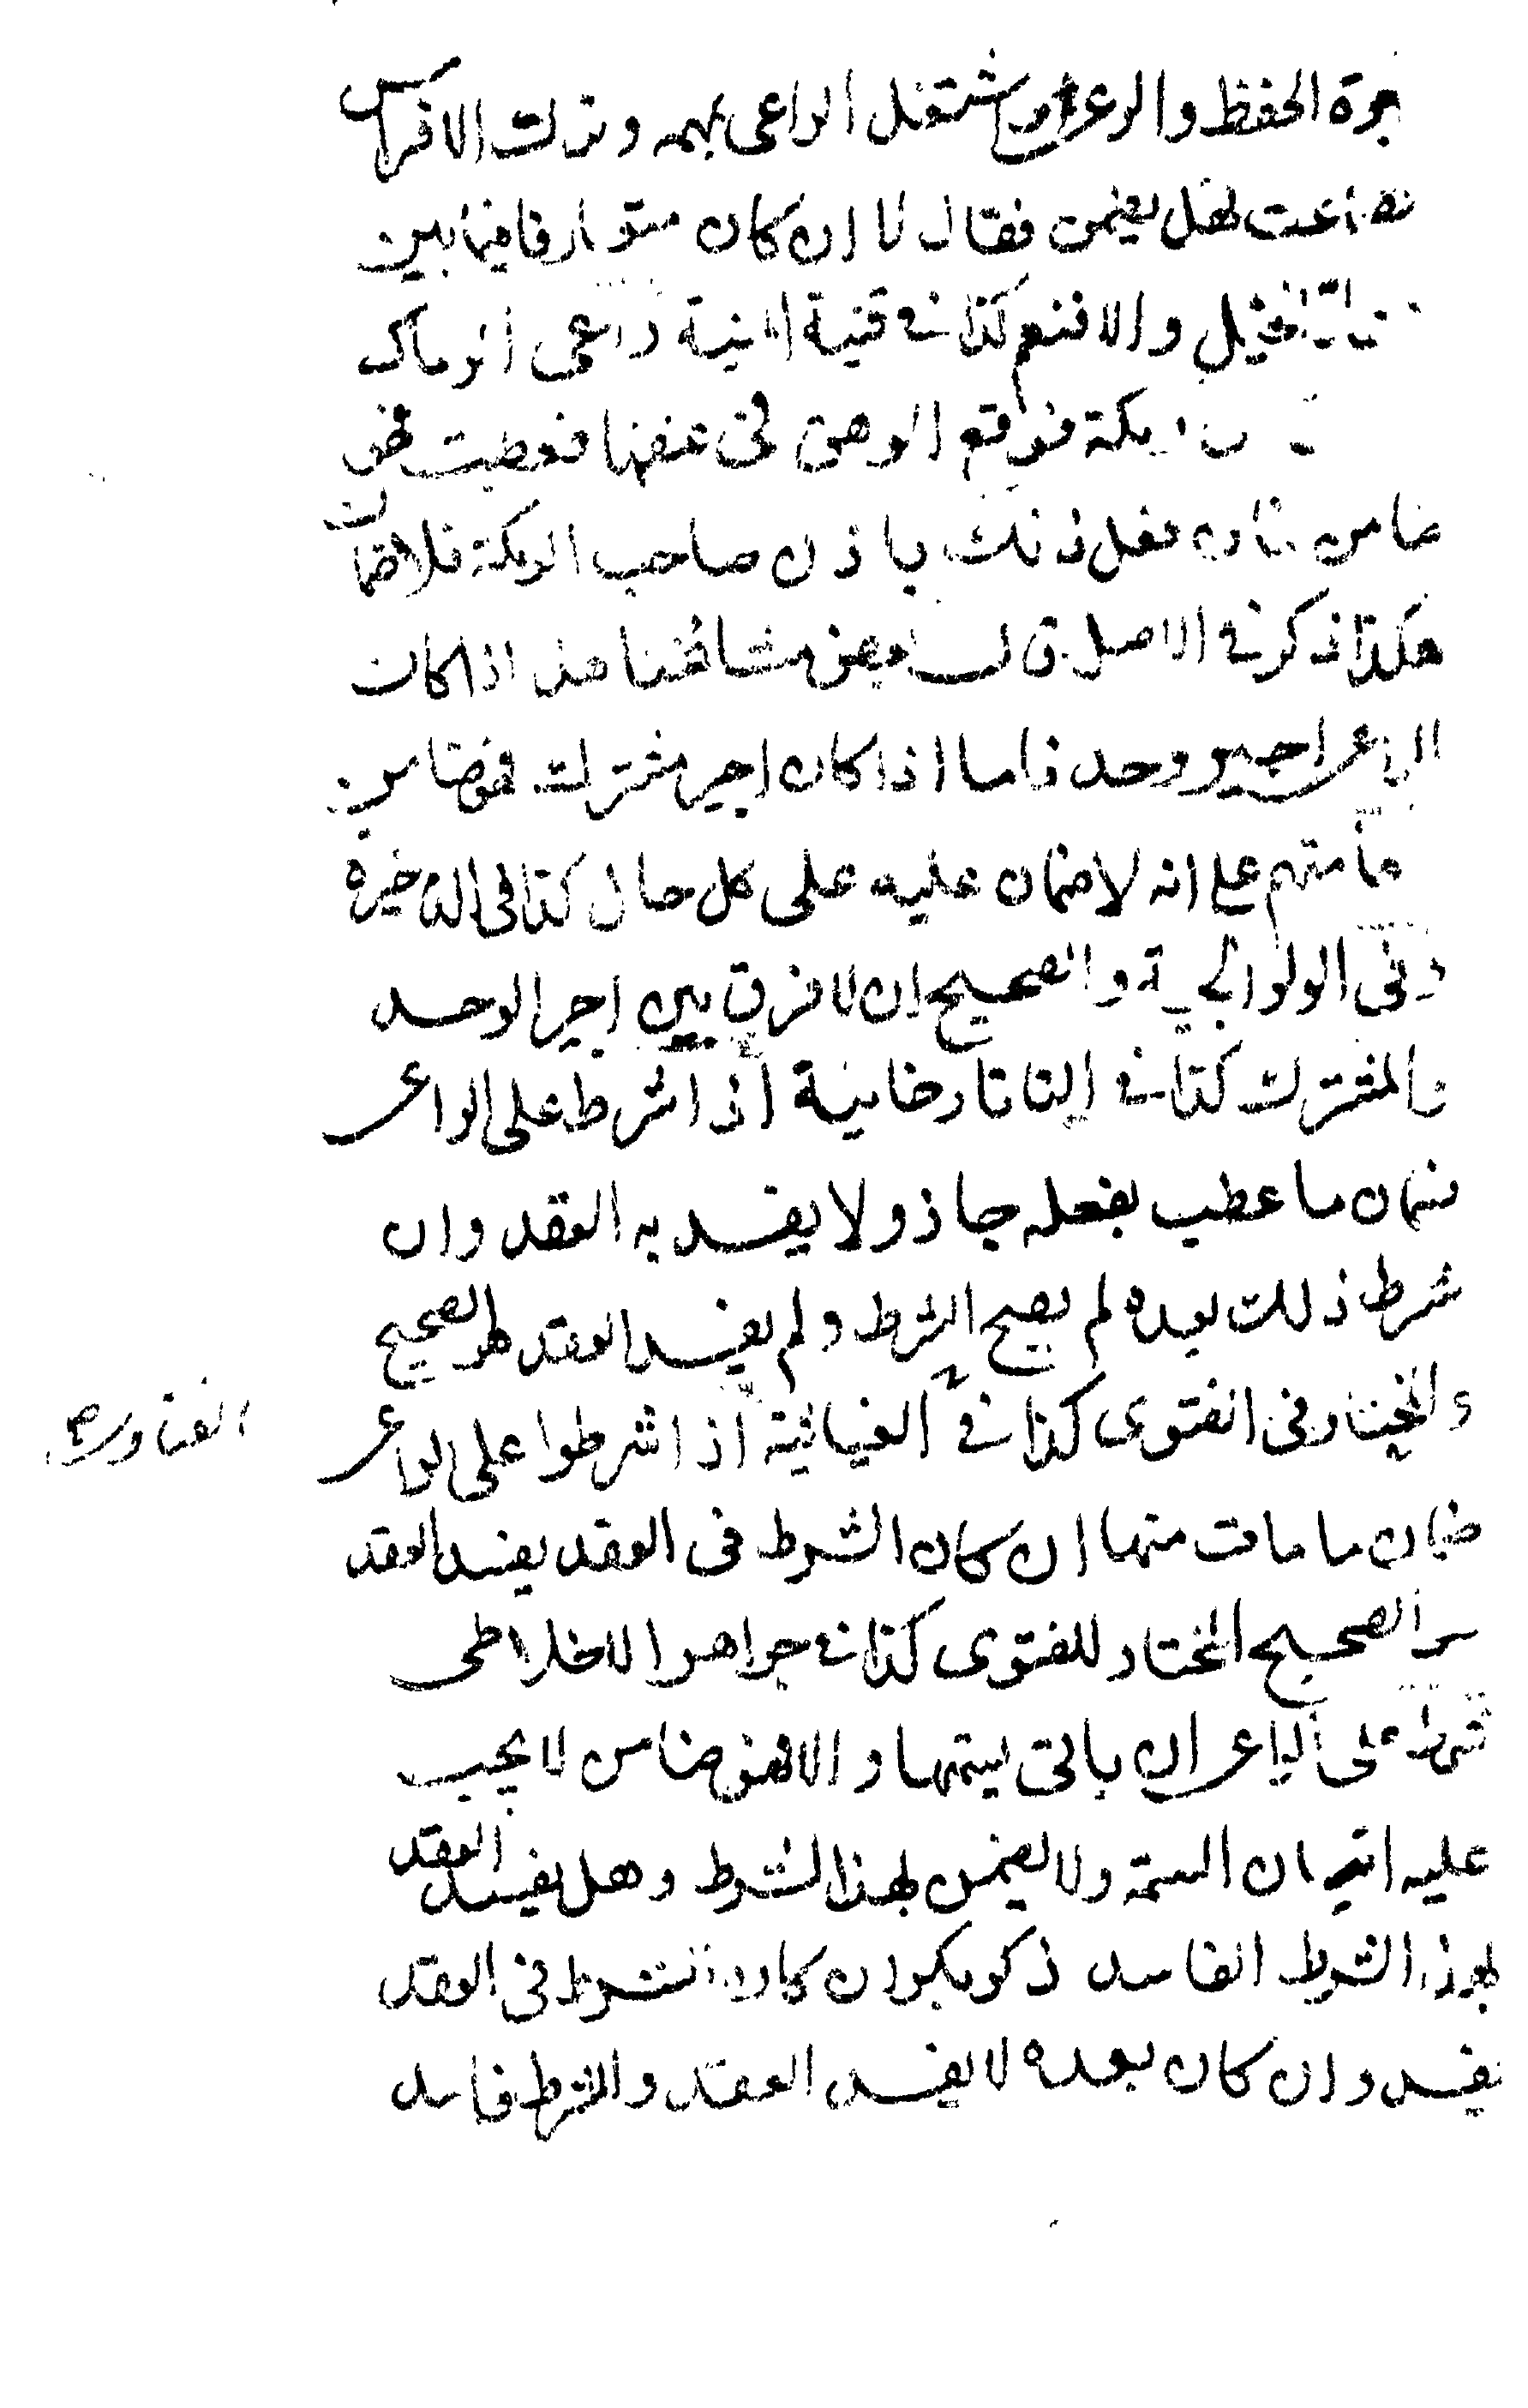 جرة الحفظ والرعى واشتغل الراعى بمهمه وترك الافراس
فضاعت فهل يضمن فقال لا ان كان متعارفا فيما بين
الخيل والا فنعم كذا فى قنية المنية راعى الرماك
رمكة فوقع الوهق فى عنقها فعطبت فهو
ضامن فان فعل ذلك باذن صاحب الرمكة فلا ضمان
هكذا ذكر فى الاصل قال بعض مشائخنا هذا اذا كان
الراعى اجير وحد فاما اذا كان اجير مشترك فهو ضامن
عامتهم على انه لا ضمان عليه على كل حال كذا فى الذخيرة
وفى الولوالجية والصحيح ان لا فرق بين اجير الوحد
والمشترك كذا فى التاتارخانية اذا شرط على الراعى
ضمان ما عطب بفعله جاز ولا يفسد به العقد وان
شرط ذلك بعده لم يصح الشرط ولم يفسد العقد هو الصحيح
والمختار فى الفتوى كذا فى الغياثية اذا شرطوا على الراعى
الفتاوى
ضمان ما مات منها ان كان الشرط فى العقد يفسد العقد
هو الصحيح المختار للفتوى كذا فى جواهر الاخلاطى
شرط على الراعى ان ياتى بسمتها والا فهو ضامن لا يجب
عليه اتيان السمة ولا يضمن بهذا الشرط وهل يفسد العقد
بهذا الشرط الفاسد ذكر بكر ان كان الشرط فى العقد
يفسد وان كان بعده لا يفسد العقد والشرط فاسد